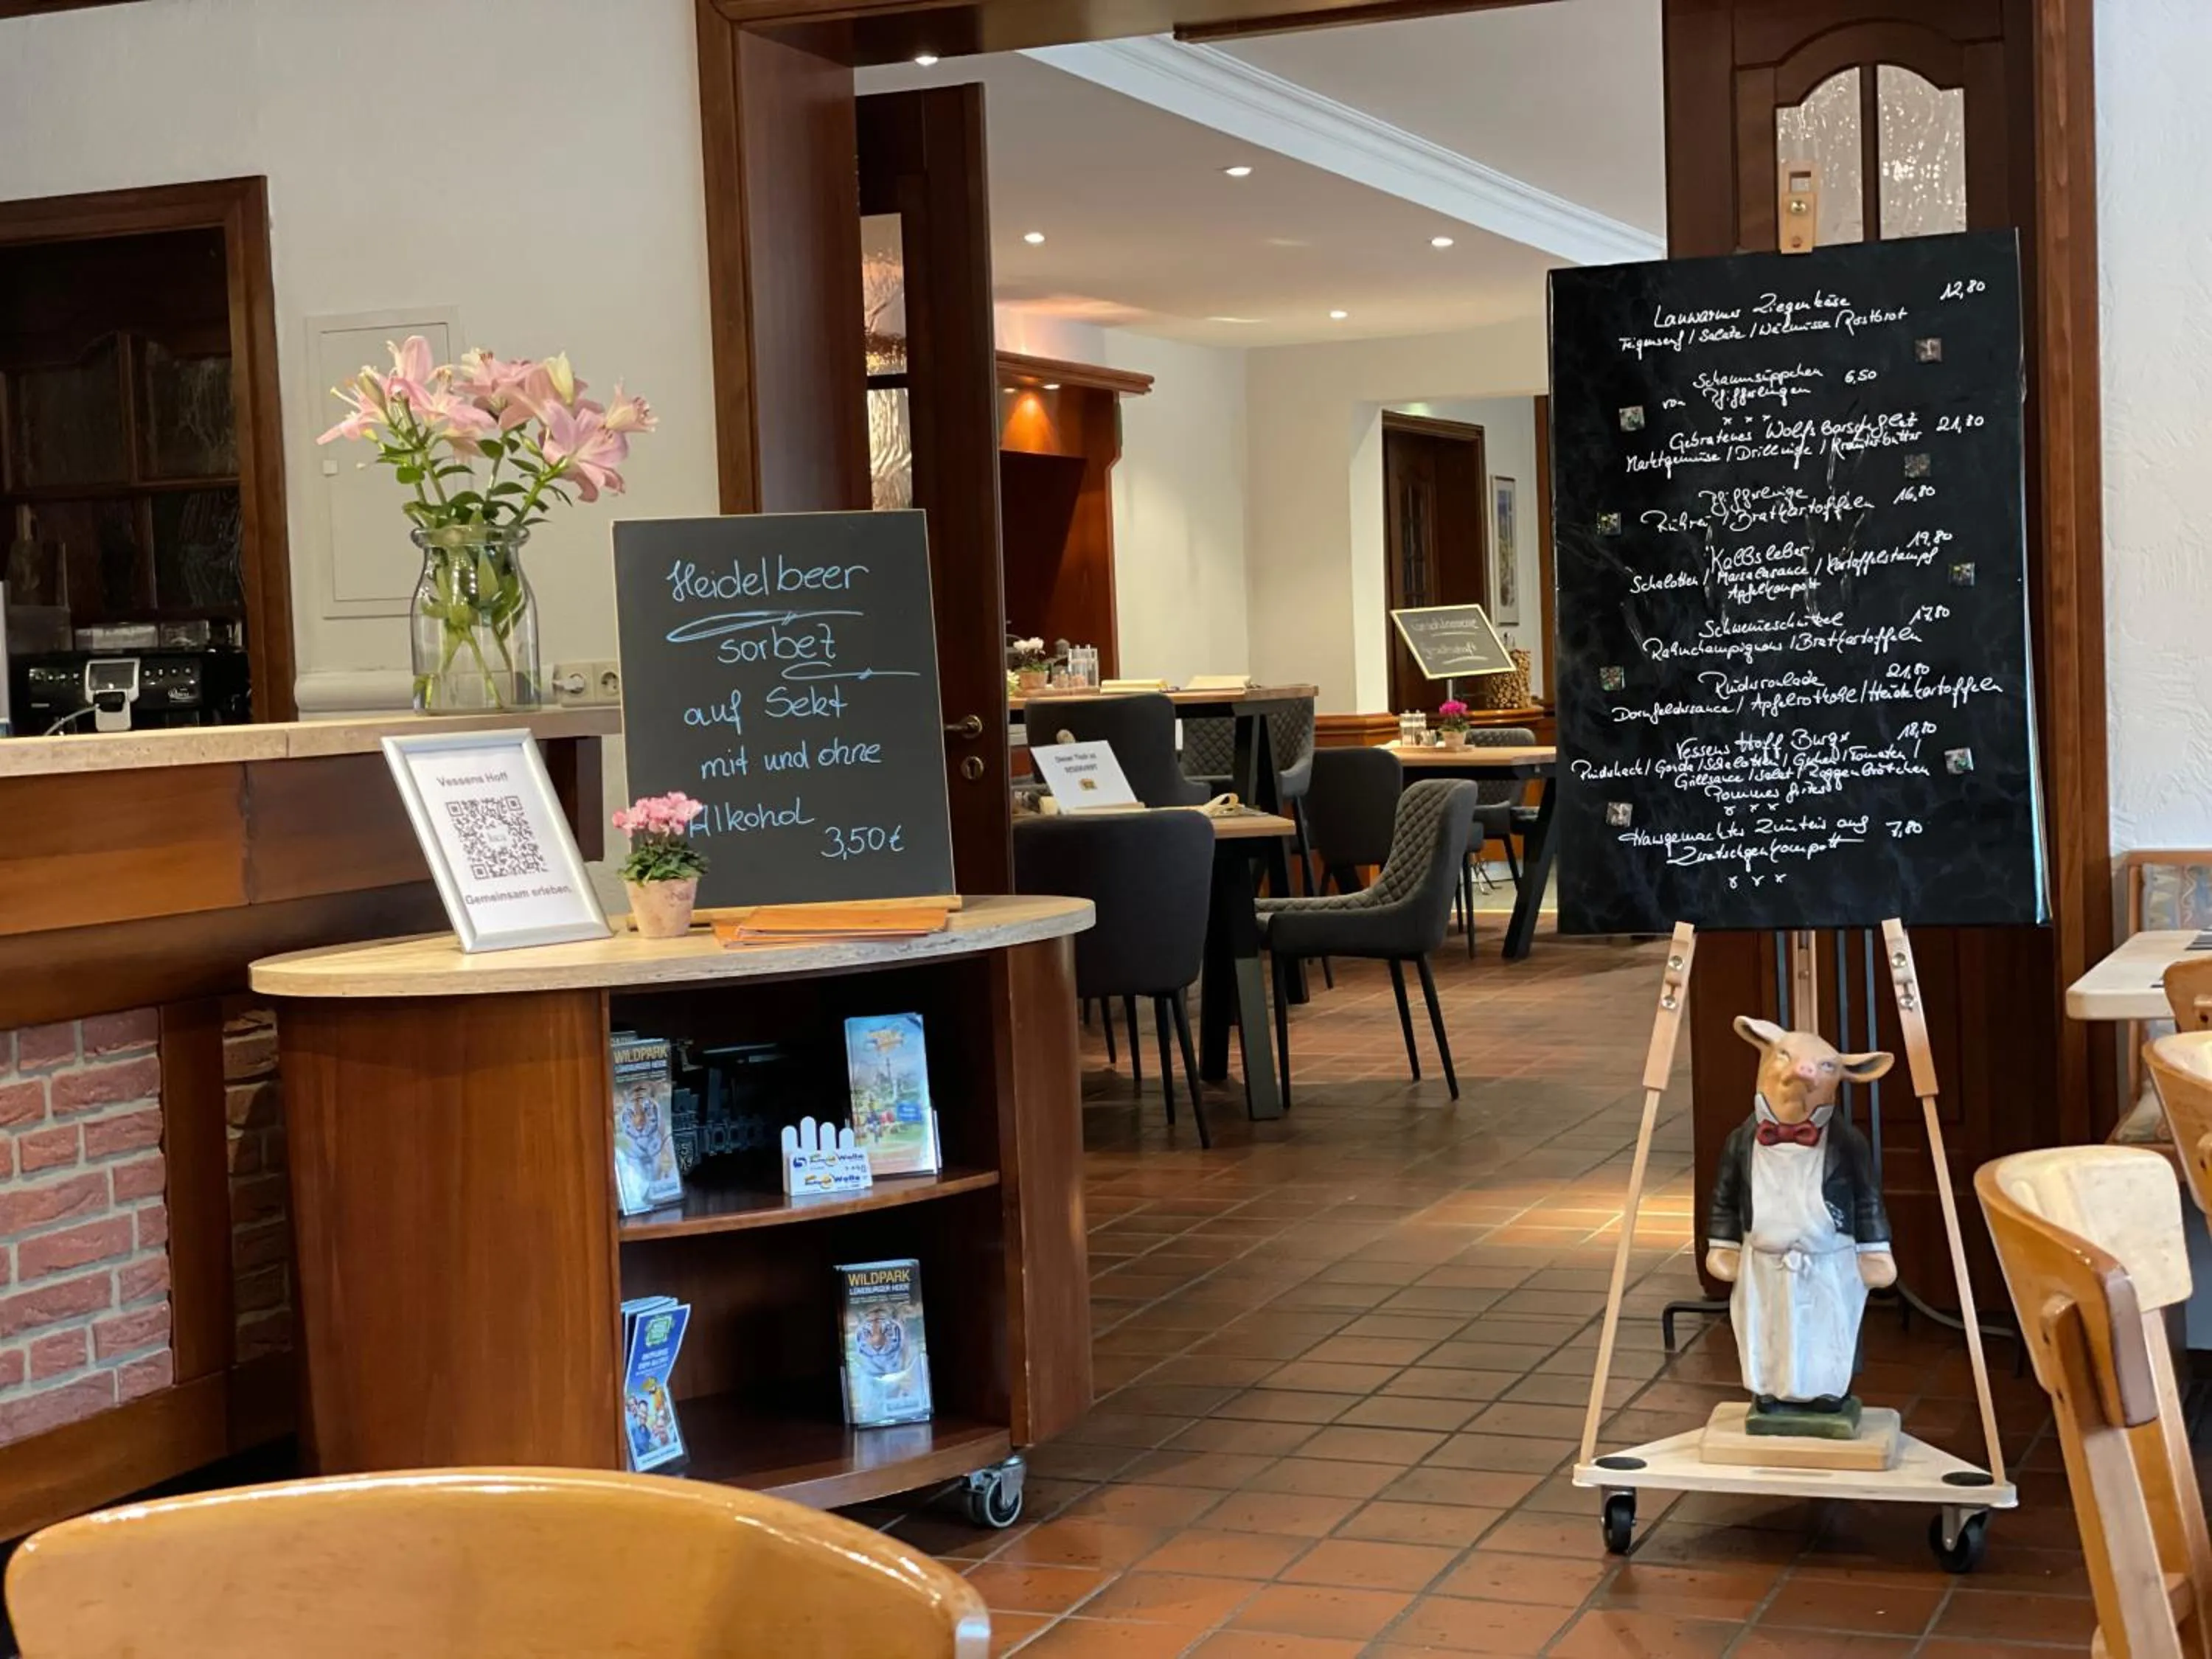 Heidelbeer
sorbet
auf Sekt
mit und ohne
Alkohol
3,50€
Vessens Hoff
Gemeinsam erleben.
Lauwarmer Ziegenkäse 12,80
Feigensenf / Salate / Walnüsse / Röstbrot
Schaumsüppchen 6,50
von Pfifferlingen
x x x
Gebratenes Wolfsbarschfilet 21,80
Marktgemüse / Drillinge / Kräuterbutter
Pfifferlinge 16,80
Rührei / Bratkartoffeln
Kalbsleber 19,80
Schalotten / Marsalasauce / Kartoffelstampf
Apfelkompott
Schweineschnitzel 17,80
Rahmchampignons / Bratkartoffeln
Rinderroulade 21,80
Dornfeldersauce / Apfelrotkohl / Heidekartoffeln
Vessens Hoff Burger 18,80
Rindshack / Gouda / Schalotten / Gurken / Tomaten /
Grillsauce / Salat / Roggenbrötchen
Pommes frites
x x x
Hausgemachtes Zimteis auf 7,80
Zwetschgenkompott
x x x
WILDPARK
LÜNEBURGER HEIDE
WILDPARK
LÜNEBURGER HEIDE